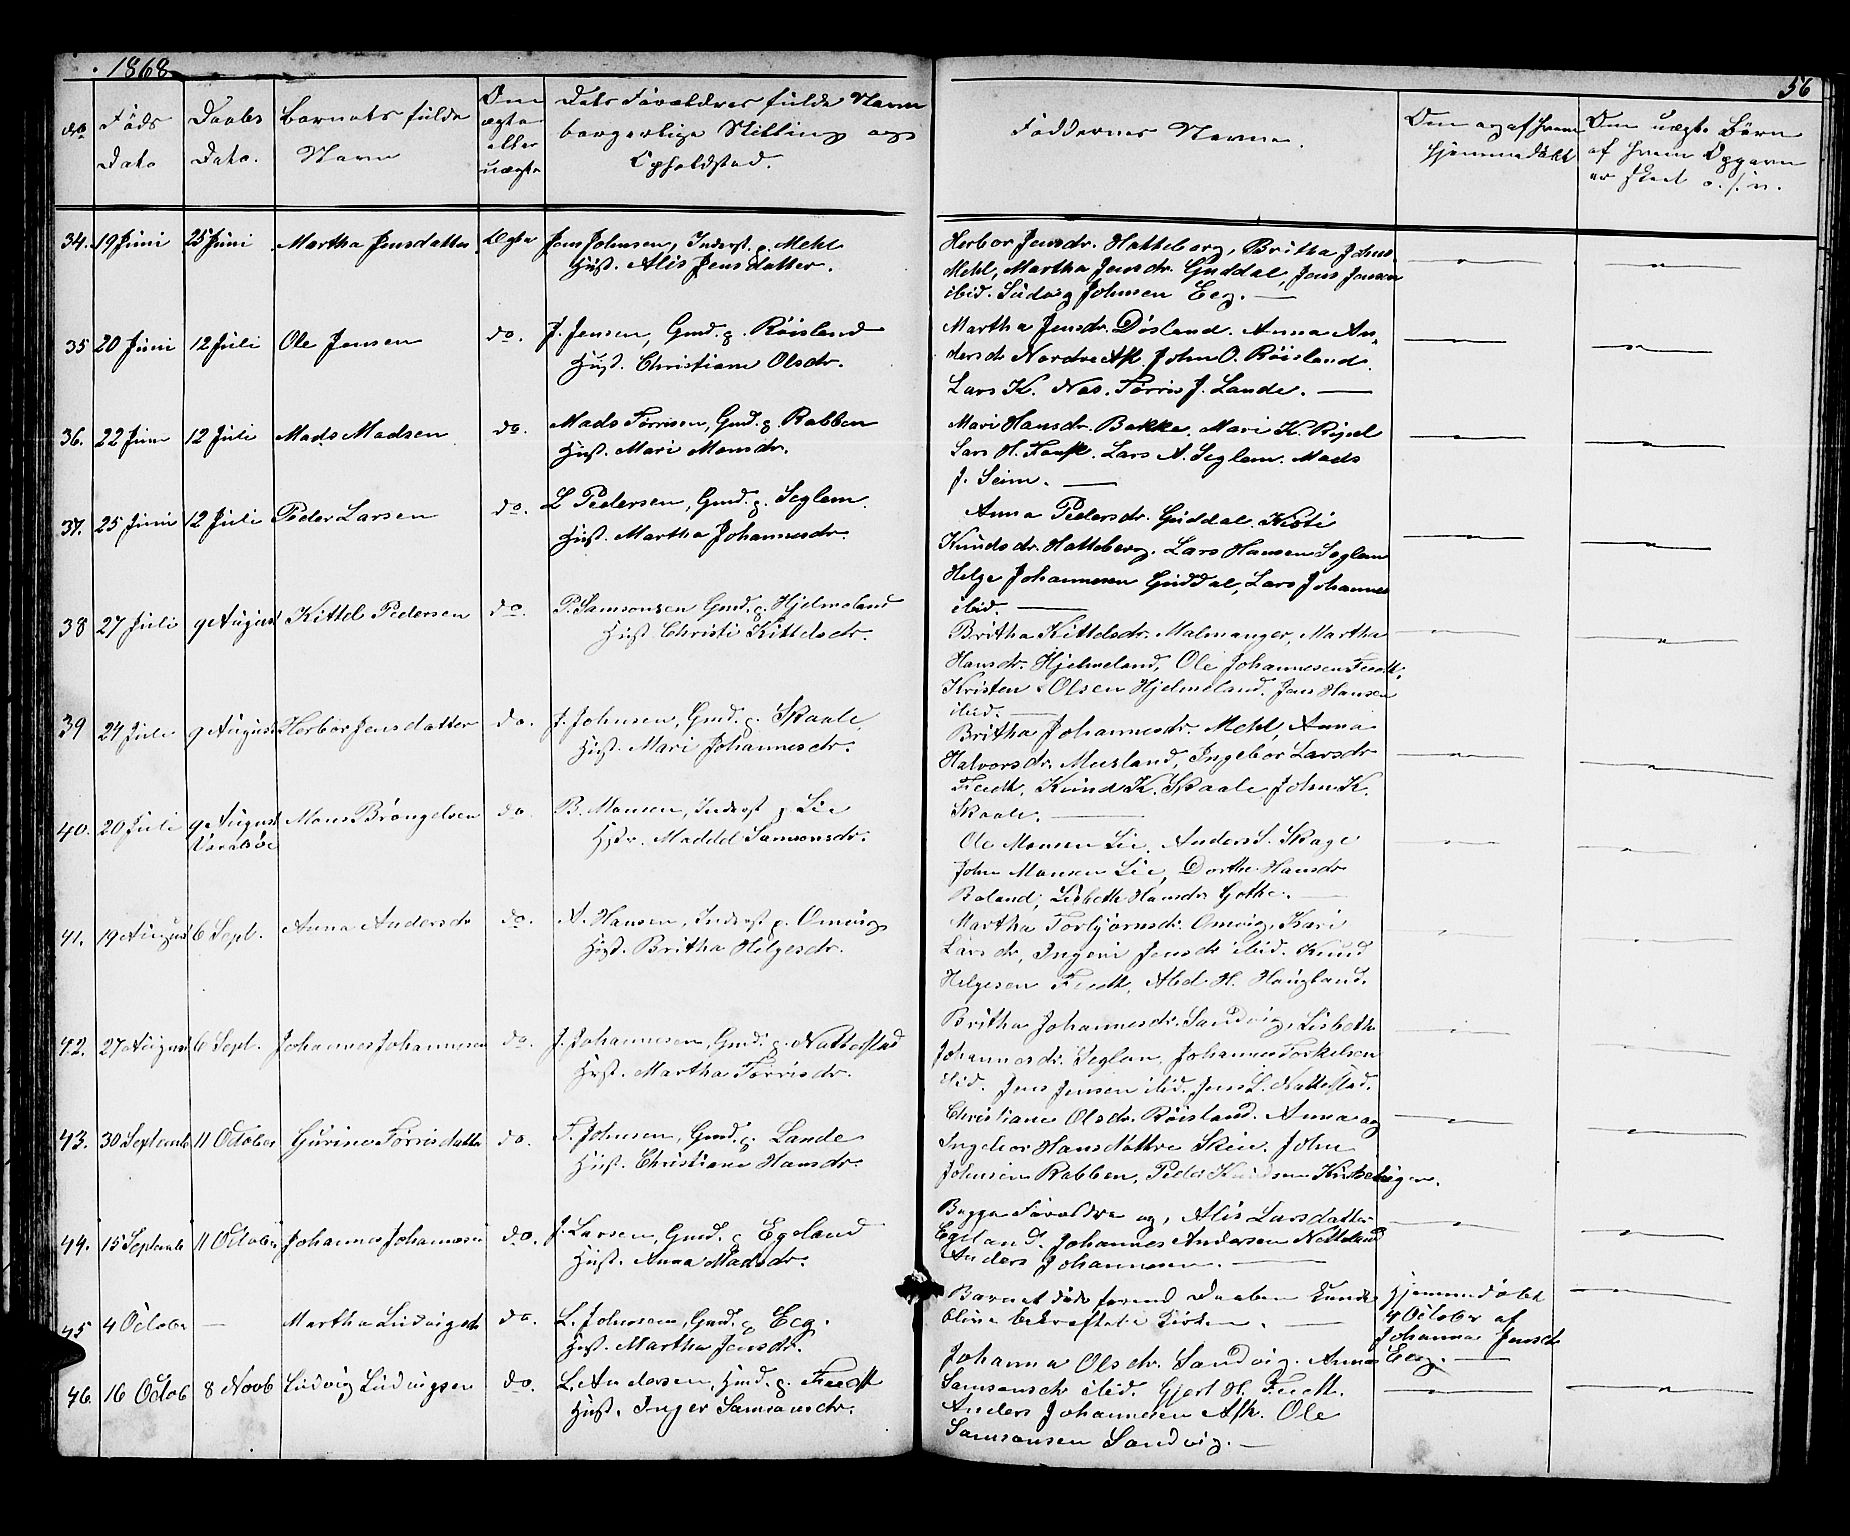 1868
56
No
Føds Dato
Daabs Dato.
Barnets fulde Navn
Om ægte eller uægte
Dets Forældres fulde Navn
borgerlige Stilling og
Opholdsted.
Faddernes Navne.
Om og af hvem
hjemmedøbt
Om uægte Børn
af hvem Opgaven
er skeet o.s.v.
34. 19 Juni 25 Juni Martha Jensdatter Ægte Jens Johnsen, Inderst. p. Mehl
Hust. Alis Jensdatter.
Herbor Jensdr. Hatteberg, Britha Johns
Mehl, Martha Jensdr. Guddal, Jens Jensen
ibid. Ludvig Johnsen Eeg.
35 20 Juni 12 Juli Ole Jensen do. J. Jensen, Gmd. p. Røisland
Hust. Christiane Olsdr.
Martha Jensdr. Døsland. Anna An-
dersdr Nordre Ask. John O. Røisland.
Lars K. Næs. Tørris J. Lande.
36. 22 Juni 12 Juli Mads Madsen do. Mads Tørrisen, Gmd. p. Rabben
Hust. Mari Monsdr.
Mari Hansdr. Bakke, Mari K.
Lars H. Lars A. Seglem. Mads
J. Seim.
37. 25 Juni 12 Juli Peder Larsen do. L Pedersen, Gmd. p. Seglem.
Hust. Martha Johannesdr.
Anna Pedersdr. Guddal. Kisti
Knudsdr. Hatteberg. Lars Hansen Seglem
Helge Johannesen Guddal, Lars Johannes
ibid.
38 27 Juli 9 August Kittel Pedersen do. P. Samsonsen Gmd. p. Hjelmeland
Hust. Christi Kittelsdr.
Britha Kittelsdr. Malmanger, Martha
Hansdr. Hjelmeland, Ole Johannesen Feedt,
Kristen Olsen Hjelmeland. Jens Hansen
ibid.
39 24 Juli 9 August Herbor Jensdatter do. J. Johnsen, Gmd. p. Skaale,
Hust. Mari Johannesdr.
Britha Johannesdr. Mehl, Anna
Halvorsdr. Musland, Ingebor Larsdr
Feedt, Knud K. Skaale John K.
Skaale.
40. 20 Juli 9 August Mons Brøngelsen do B. Monsen, Inderst p Lie
Varalsøe
Hstr. Maddel Samsonsdr.
Ole Monsen Lie, Anders S. Skage
John Monsen Lie, Dorthe Hansdr
Boland, Lisbeth Hansdr Gothe.
41. 19 August 6 Sept. Anna Andersdr do. A. Hansen, Inderst p. Omvig
Hust. Britha Helgesdr.
Martha Torbjørnsdr. Omvig, Kari
Larsdr, Ingeri Jensdr ibid. Knud
Helgesen Feedt, Abel H. Haugland.
42. 27 August 6 Sept. Johannes Johannesen do. J. Johannesen, Gmd. p. Nattestad
Hust. Martha Tørrisdr.
Britha Johannesdr. Sandvig, Lisbeth
Johannesdr. Seglem, Johannes Torkelsen
ibid. Jens Jensen ibid. Jens L. Nattestad.
43. 30 Septemb 11 October Gurine Tørrisdatter do. T. Johnsen, Gmd. p. Lande
Hust. Christiane Hansdr.
Christiane Olsdr. Røisland. Anna og
Ingebor Hansdøttre Skeie. John
Johnsen Rabben, Peder Knudsen
44. 15 Septemb 11 October Johannes Johannesen do. J. Larsen, Gmd. p Egeland
Hust. Anna Madsdr.
Begge Forældre og, Alis Larsdatter
Egeland. Johannes Andersen
Anders Johannesen.
45 4 October — Martha Ludvigsdr do. L. Johnsen, Gmd. p Eeg.
Hust. Martha Jensdr.
Barnet døde førend Daaben kunde
blive bekræftet i Kirken.
Hjemmedøbt
4 October af
Johanna Jensdr
Eeg.
46. 16 Octob 8 Novb Ludvig Ludvigsen do. L. Andersen, Gmd. p. Feedt
Hust. Inger Samsonsdr.
Johanna Olsdr. Sandvig. Anna
Samsonsdr ibid. Gjert H. Feedt.
Anders Johannesen Ask. Ole
Samsonsen Sandvig.